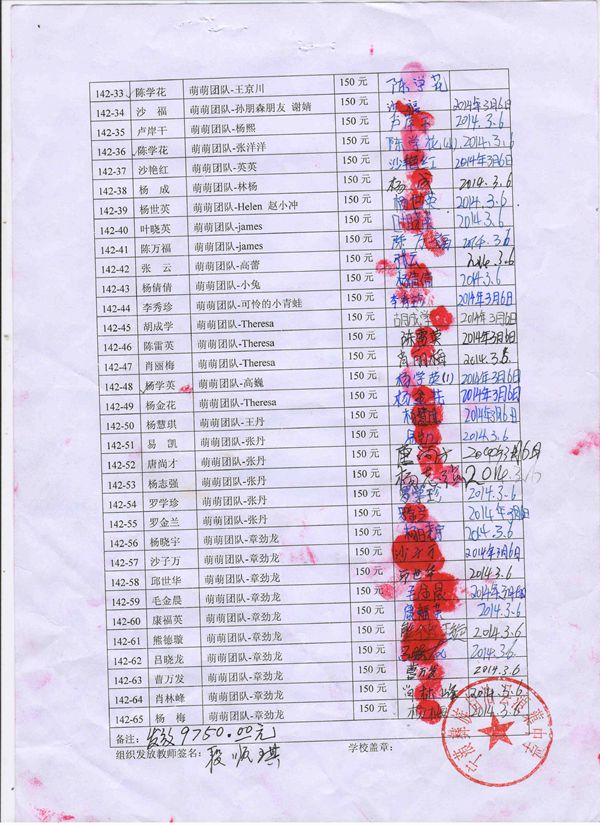 142-33 陈学花 萌萌团队-王京川 150 元 陈学花
142-34 沙 福 萌萌团队-孙朋森朋友 谢婧 150 元 沙福 2014年3月6日
142-35 卢岸干 萌萌团队-杨熙 150 元 卢岸干 2014.3.6
142-36 陈学花 萌萌团队-张洋洋 150 元 陈学花 2014.3.6
142-37 沙艳红 萌萌团队-英英 150 元 沙艳红 2014年3月6日
142-38 杨 成 萌萌团队-林杨 150 元 杨成 2014.3.6
142-39 杨世英 萌萌团队-Helen 赵小冲 150 元 杨世英 2014.3.6
142-40 叶晓英 萌萌团队-james 150 元 2014.3.6
142-41 陈万福 萌萌团队-james 150 元 陈万福 2014.3.6
142-42 张 云 萌萌团队-高蕾 150 元 张云 2014.3.6
142-43 杨倩倩 萌萌团队-小兔 150 元 杨倩倩 2014.3.6
142-44 李秀珍 萌萌团队-可怜的小青蛙 150 元 李秀珍 2014年3月6日
142-45 胡成学 萌萌团队-Theresa 150 元 胡成学 2014年3月6日
142-46 陈雷英 萌萌团队-Theresa 150 元 陈雷英 2014年3月6日
142-47 肖丽梅 萌萌团队-Theresa 150 元 肖丽梅 2014.3.6
142-48 杨学英 萌萌团队-高巍 150 元 杨学英(1) 2014年3月6日
142-49 杨金花 萌萌团队-Theresa 150 元 杨金花 2014年3月6日
142-50 杨慧琪 萌萌团队-王丹 150 元 杨慧琪 2014年3月6日
142-51 易 凯 萌萌团队-张丹 150 元 2014.3.6
142-52 唐尚才 萌萌团队-张丹 150 元 唐尚才
142-53 杨志强 萌萌团队-张丹 150 元 杨志强 2014.3.6
142-54 罗学珍 萌萌团队-张丹 150 元 罗学珍 2014.3.6
142-55 罗金兰 萌萌团队-张丹 150 元 2014年3月6日
142-56 杨晓宇 萌萌团队-章劲龙 150 元 杨晓宇 2014.3.6
142-57 沙子万 萌萌团队-章劲龙 150 元 沙子万 2014年3月6日
142-58 邱世华 萌萌团队-章劲龙 150 元 2014.3.6
142-59 毛金晨 萌萌团队-章劲龙 150 元 2014年3月6日
142-60 康福英 萌萌团队-章劲龙 150 元 康福英 2014.3.6
142-61 熊德璇 萌萌团队-章劲龙 150 元 2014.3.6
142-62 吕晓龙 萌萌团队-章劲龙 150 元 2014.3.6
142-63 曹万发 萌萌团队-章劲龙 150 元 曹万发 2014.3.6
142-64 肖林峰 萌萌团队-章劲龙 150 元 肖林峰 2014.3.6
142-65 杨 梅 萌萌团队-章劲龙 150 元 杨梅 2014.3.6
备注: 发放9750.00元
组织发放教师签名: 段顺琪 学校盖章: